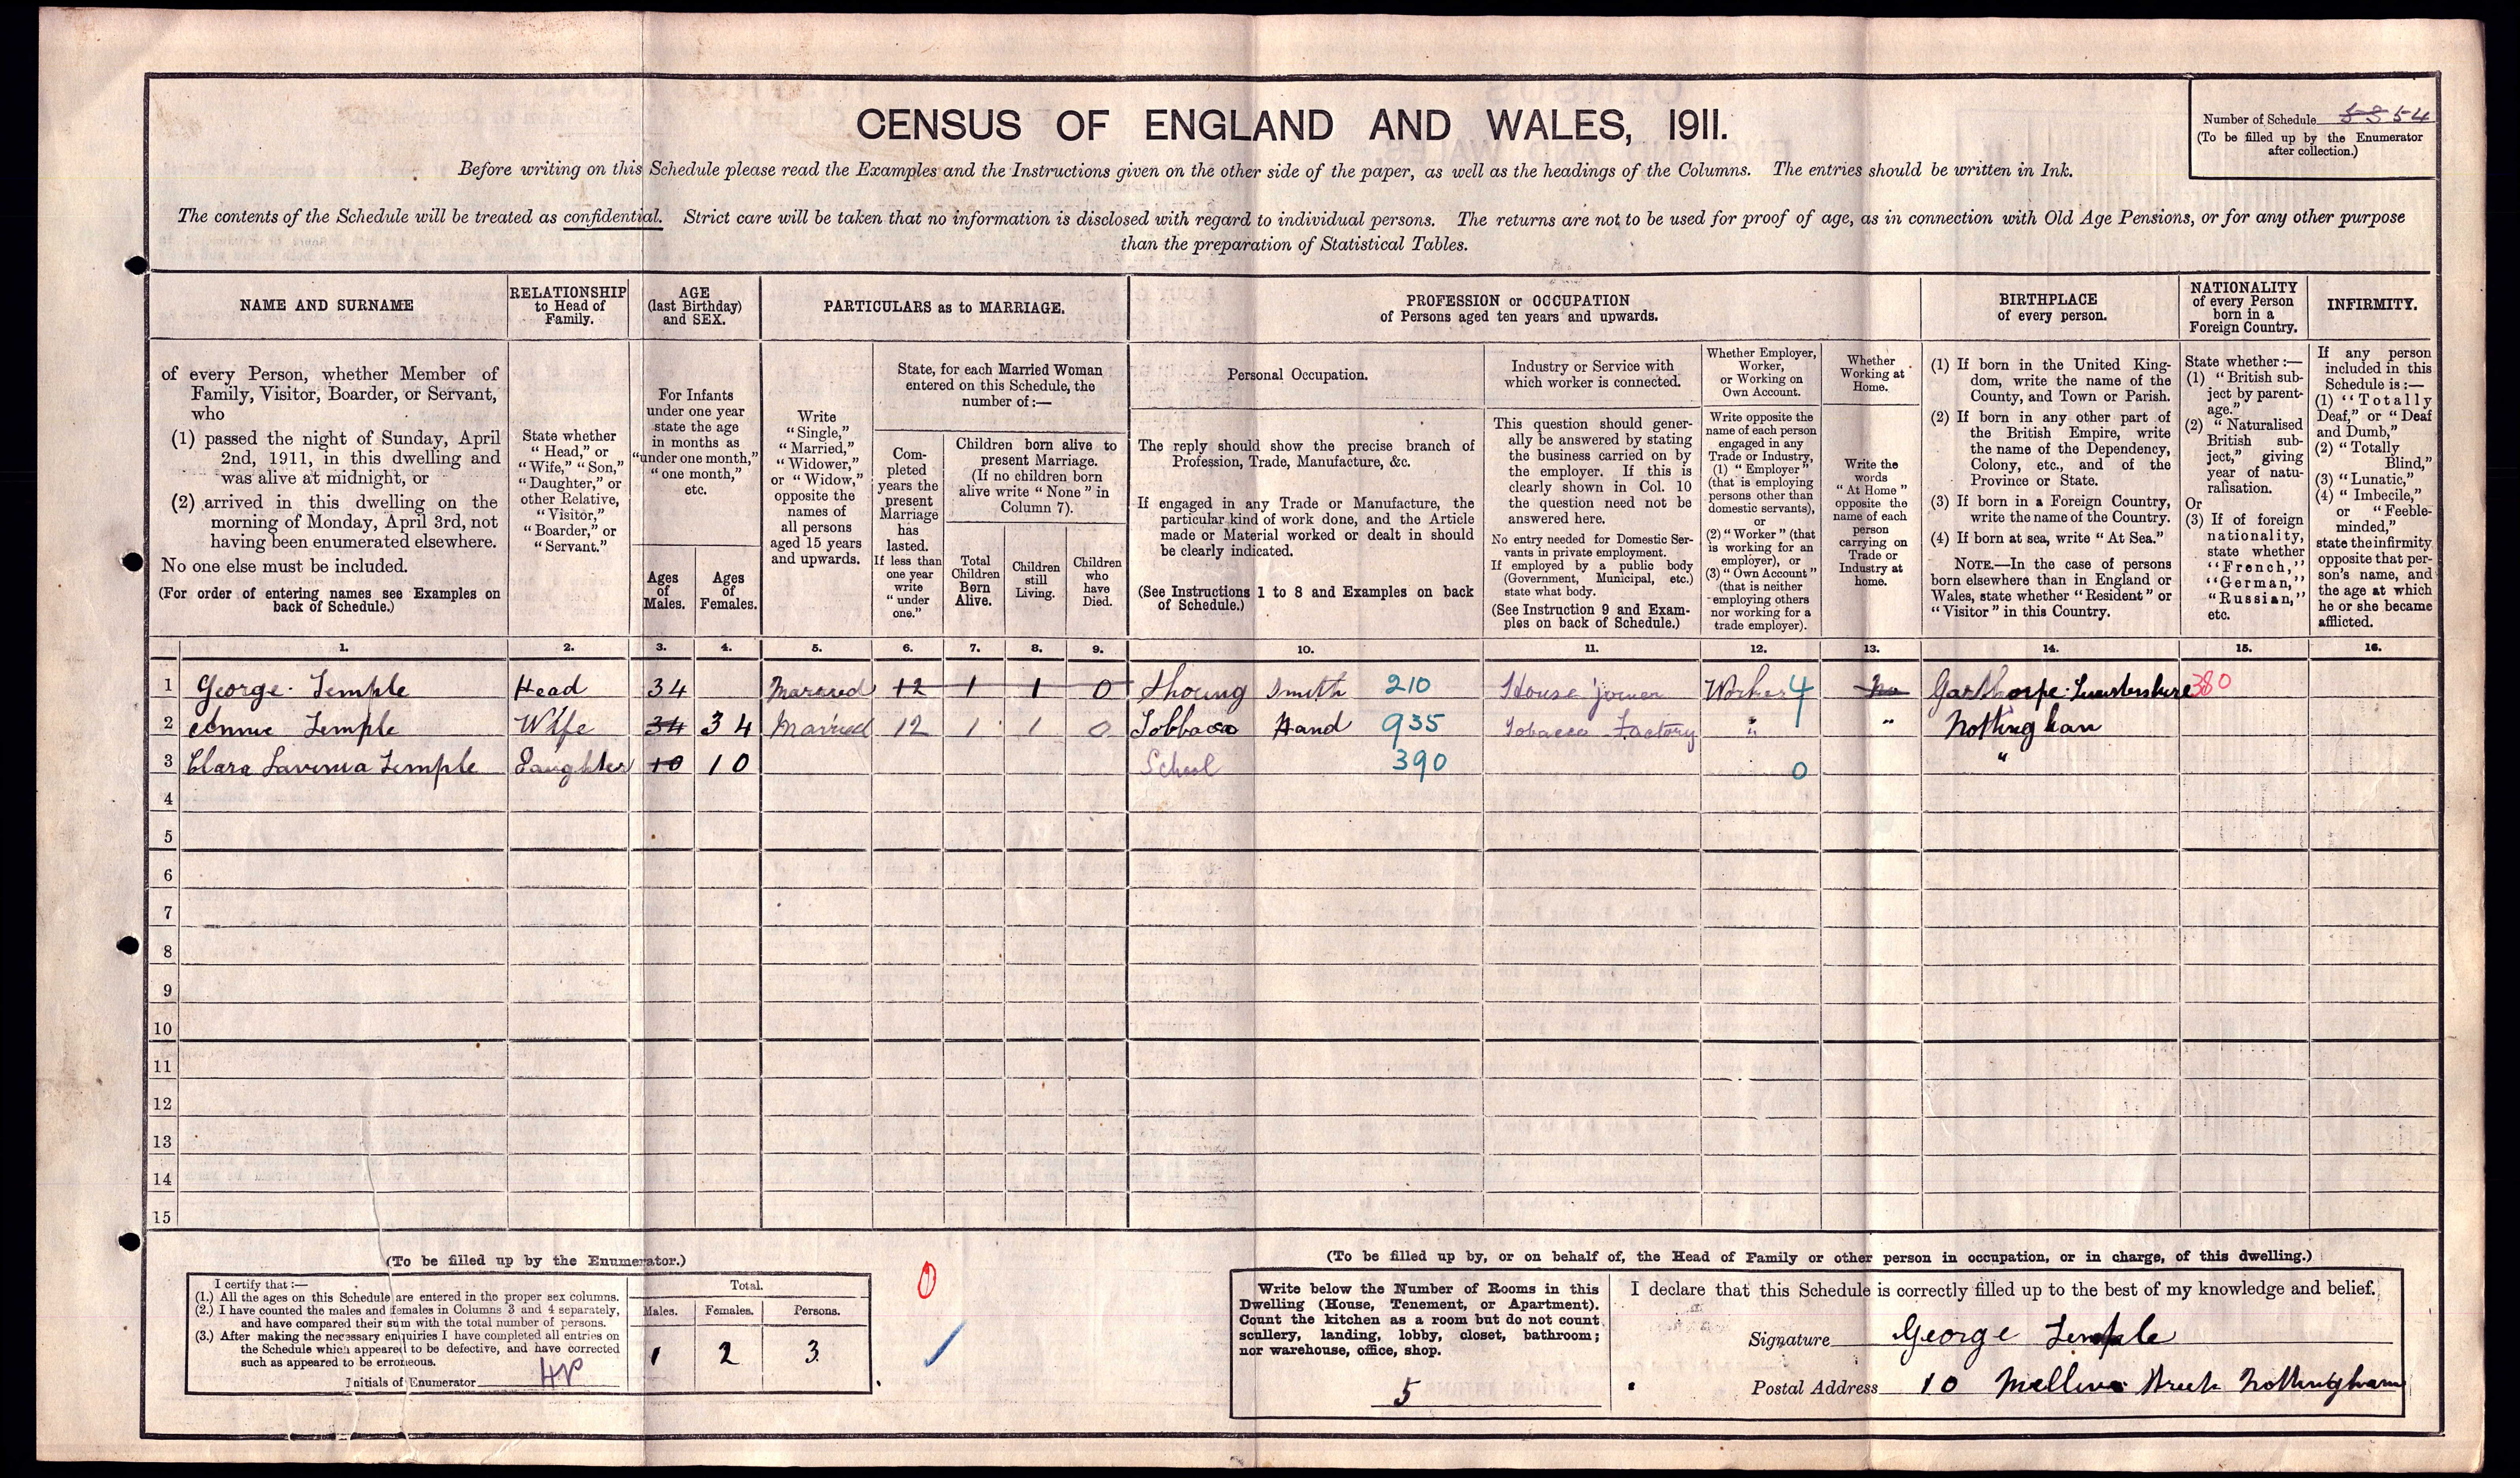 CENSUS OF ENGLAND AND WALES, 1911.
Number of Schedule 54
(To be filled up by the Enumerator
after collection.)
Before writing on this Schedule please read the Examples and the Instructions given on the other side of the paper, as well as the headings of the Columns. The entries should be written in Ink.
The contents of the Schedule will be treated as confidential. Strict care will be taken that no information is disclosed with regard to individual persons. The returns are not to be used for proof of age, as in connection with Old Age Pensions, or for any other purpose
than the preparation of Statistical Tables.
NAME AND SURNAME
of every Person, whether Member of
Family, Visitor, Boarder, or Servant,
who
(1) passed the night of Sunday, April
2nd, 1911, in this dwelling and
was alive at midnight, or
(2) arrived in this dwelling on the
morning of Monday, April 3rd, not
having been enumerated elsewhere.
No one else must be included.
(For order of entering names see Examples on
back of Schedule.)
RELATIONSHIP
to Head of
Family.
State whether
"Head," or
"Wife," "Son,"
"Daughter," or
other Relative,
"Visitor,"
"Boarder," or
"Servant."
AGE
(last Birthday)
and SEX.
For Infants
under one year
state the age
in months as
"under one month,"
"one month,"
etc.
Ages
of
Males.
Ages
of
Females.
PARTICULARS as to MARRIAGE.
Write
"Single,"
"Married,"
"Widower,"
or "Widow,"
opposite the
names of
all persons
aged 15 years
and upwards.
State, for each Married Woman
entered on this Schedule, the
number of:—
Com-
pleted
years the
present
Marriage
has
lasted.
If less than
one year
write
"under
one."
Children born alive to
present Marriage.
(If no children born
alive write "None" in
Column 7).
Total
Children
Born
Alive.
Children
still
Living.
Children
who
have
Died.
PROFESSION or OCCUPATION
of Persons aged ten years and upwards.
Personal Occupation.
The reply should show the precise branch of
Profession, Trade, Manufacture, &c.
If engaged in any Trade or Manufacture, the
particular kind of work done, and the Article
made or Material worked or dealt in should
be clearly indicated.
(See Instructions 1 to 8 and Examples on back
of Schedule.)
Industry or Service with
which worker is connected.
This question should gener-
ally be answered by stating
the business carried on by
the employer. If this is
clearly shown in Col. 10
the question need not be
answered here.
No entry needed for Domestic Ser-
vants in private employment.
If employed by a public body
(Government, Municipal, etc.)
state what body.
(See Instruction 9 and Exam-
ples on back of Schedule.)
Whether Employer,
Worker,
or Working on
Own Account.
Write opposite the
name of each person
engaged in any
Trade or Industry,
(1) "Employer"
(that is employing
persons other than
domestic servants),
or
(2) "Worker" (that
is working for an
employer), or
(3) "Own Account"
(that is neither
employing others
nor working for a
trade employer).
Whether
Working at
Home.
Write the
words
"At Home"
opposite the
name of each
person
carrying on
Trade or
Industry at
home.
BIRTHPLACE
of every person.
(1) If born in the United King-
dom, write the name of the
County, and Town or Parish.
(2) If born in any other part of
the British Empire, write
the name of the Dependency,
Colony, etc., and of the
Province or State.
(3) If born in a Foreign Country,
write the name of the Country.
(4) If born at sea, write "At Sea."
NOTE.—In the case of persons
born elsewhere than in England or
Wales, state whether "Resident" or
"Visitor" in this Country.
NATIONALITY
of every Person
born in a
Foreign Country.
State whether:—
(1) "British sub-
ject by parent-
age."
(2) "Naturalised
British sub-
ject," giving
year of natu-
ralisation.
Or
(3) If of foreign
nationality,
state whether
"French,"
"German,"
"Russian,"
etc.
INFIRMITY.
If any person
included in this
Schedule is:—
(1) "Totally
Deaf," or "Deaf
and Dumb,"
(2) "Totally
Blind,"
(3) "Lunatic,"
(4) "Imbecile,"
or "Feeble-
minded,"
state the infirmity
opposite that per-
son's name, and
the age at which
he or she became
afflicted.
1. 2. 3. 4. 5. 6. 7. 8. 9. 10. 11. 12. 13. 14. 15. 16.
1 George Temple Head 34 Married 12 1 1 0 Shoeing Smith 210 House joiner Worker 4 No Garthorpe Leicestershire 380
2 Annie Temple Wife 34 34 Married 12 1 1 0 Tobbaco Hand 935 Tobacco Factory " " Nottingham
3 Clara Lavinia Temple Daughter 10 10 School 390 0 "
4
5
6
7
8
9
10
11
12
13
14
15
(To be filled up by the Enumerator.)
I certify that:—
(1.) All the ages on this Schedule are entered in the proper sex columns.
(2.) I have counted the males and females in Columns 3 and 4 separately,
and have compared their sum with the total number of persons.
(3.) After making the necessary enquiries I have completed all entries on
the Schedule which appeared to be defective, and have corrected
such as appeared to be erroneous.
Initials of Enumerator
Total.
Males. Females. Persons.
1 2 3
0
(To be filled up by, or on behalf of, the Head of Family or other person in occupation, or in charge, of this dwelling.)
Write below the Number of Rooms in this
Dwelling (House, Tenement, or Apartment).
Count the kitchen as a room but do not count
scullery, landing, lobby, closet, bathroom;
nor warehouse, office, shop.
5
I declare that this Schedule is correctly filled up to the best of my knowledge and belief.
Signature George Temple
Postal Address 10 Street Nottingham